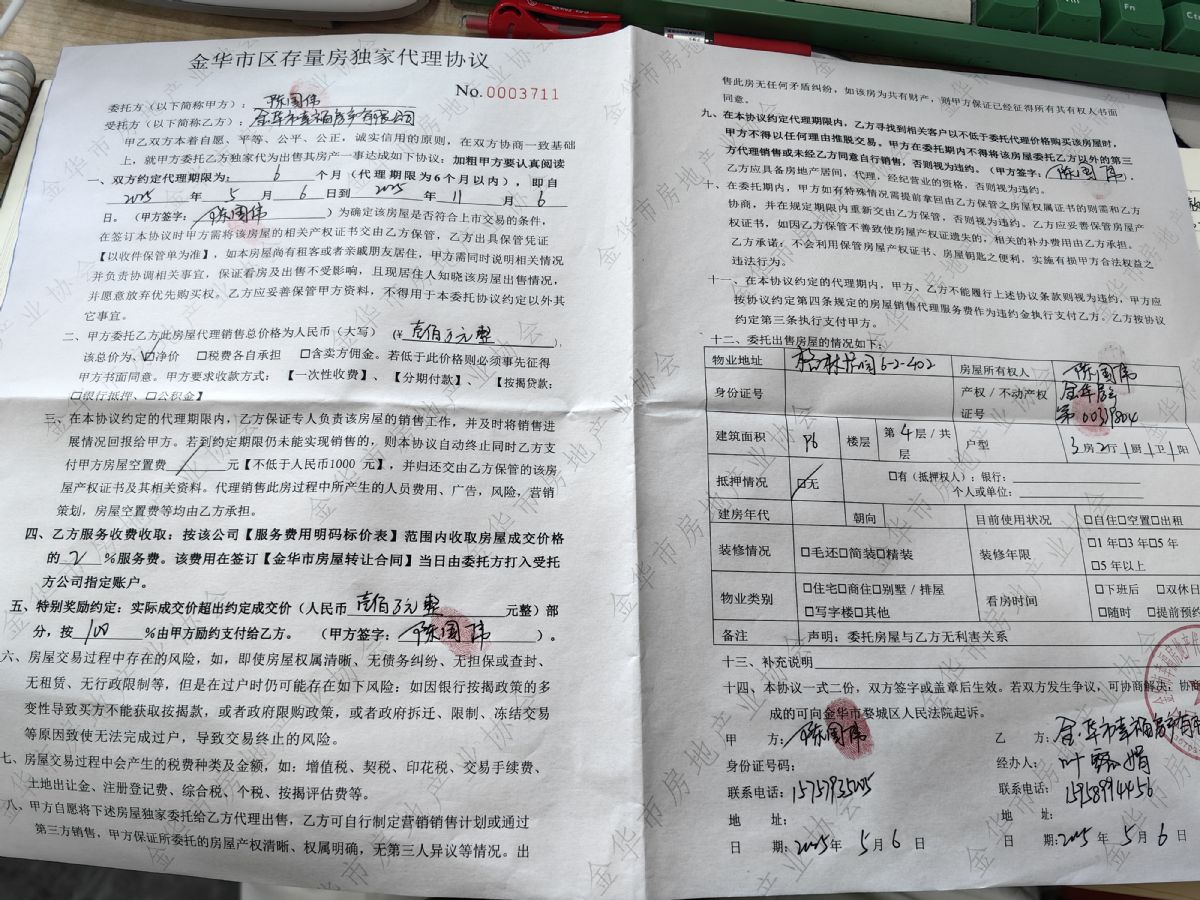 金华市区存量房独家代理协议
No.0003711
委托方（以下简称甲方）：陈国伟
受托方（以下简称乙方）：金华市幸福房产有限公司
甲乙双方本着自愿、平等、公平、公正，诚实信用的原则，在双方协商一致基础
上，就甲方委托乙方独家代为出售其房产一事达成如下协议：加粗甲方要认真阅读
一、双方约定代理期限为：6个月（代理期限为6个月以内），即自
2025年5月6日到2025年11月6
日。（甲方签字：陈国伟）为确定该房屋是否符合上市交易的条件，
在签订本协议时甲方需将该房屋的相关产权证书交由乙方保管，乙方出具保管凭证
【以收件保管单为准】，如本房屋尚有租客或者亲戚朋友居住，甲方需同时说明相关情况
并负责协调相关事宜，保证看房及出售不受影响，且现居住人知晓该房屋出售情况，
并愿意放弃优先购买权。乙方应妥善保管甲方资料，不得用于本委托协议约定以外其
它事宜。
二、甲方委托乙方此房屋代理销售总价格为人民币（大写）（¥壹佰万元整），
该总价为、☑净价 □税费各自承担 □含卖方佣金。若低于此价格则必须事先征得
甲方书面同意。甲方要求收款方式：【一次性收费】、【分期付款】、【按揭贷款：
□银行抵押、□公积金】
三、在本协议约定的代理期限内，乙方保证专人负责该房屋的销售工作，并及时将销售进
展情况回报给甲方。若到约定期限仍未能实现销售的，则本协议自动终止同时乙方支
付甲方房屋空置费/元【不低于人民币1000 元】，并归还交由乙方保管的该房
屋产权证书及其相关资料。代理销售此房过程中所产生的人员费用、广告，风险，营销
策划，房屋空置费等均由乙方承担。
四、乙方服务收费收取：按该公司【服务费用明码标价表】范围内收取房屋成交价格
的2%服务费。该费用在签订【金华市房屋转让合同】当日由委托方打入受托
方公司指定账户。
五、特别奖励约定：实际成交价超出约定成交价（人民币壹佰万元整元整）部
分，按100%由甲方励约支付给乙方。（甲方签字：陈国伟）。
六、房屋交易过程中存在的风险，如，即使房屋权属清晰、无债务纠纷、无担保或查封、
无租赁、无行政限制等，但是在过户时仍可能存在如下风险：如因银行按揭政策的多
变性导致买方不能获取按揭款，或者政府限购政策，或者政府拆迁、限制、冻结交易
等原因致使无法完成过户，导致交易终止的风险。
七、房屋交易过程中会产生的税费种类及金额，如：增值税、契税、印花税、交易手续费、
土地出让金、注册登记费、综合税、个税、按揭评估费等。
八、甲方自愿将下述房屋独家委托给乙方代理出售，乙方可自行制定营销销售计划或通过
第三方销售，甲方保证所委托的房屋产权清晰、权属明确，无第三人异议等情况。出
售此房无任何矛盾纠纷，如该房为共有财产，则甲方保证已经征得所有其有权人书面
同意。
九、在本协议约定代理期限内，乙方寻找到相关客户以不低于委托代理价格购买该房屋时，
甲方不得以任何理由推脱交易，甲方在委托期内不得将该房屋委托乙方以外的第三
方代理销售或未经乙方同意自行销售，否则视为违约。（甲方签字：陈国伟）。
乙方应具备房地产居间，代理，经纪营业的资格，否则视为违约。
十、在委托期内，甲方如有特殊情况需提前拿回由乙方保管之房屋权属证书的则需和乙方
协商，并在规定期限内重新交由乙方保管，否则视为违约。乙方应妥善保管房屋产
权证书，如因乙方保管不善致使房屋产权证遗失的，相关的补办费用由乙方承担。
乙方承诺：不会利用保管房屋产权证书、房屋钥匙之便利，实施有损甲方合法权益之
违法行为。
十一、在本协议约定的代理期内，甲方、乙方不能履行上述协议条款则视为违约，甲方应
按协议约定第四条规定的房屋销售代理服务费作为违约金执行支付乙方。乙方按协议
约定第三条执行支付甲方。
十二、委托出售房屋的情况如下：
物业地址 6-2-402 房屋所有权人 陈国伟
身份证号 产权/不动产权证号 第00398804
建筑面积 96 楼层 第4层/共层 户型 3房2厅1厨1卫1阳
抵押情况 ☑无 □有（抵押权人）：银行：
个人或单位：
建房年代 朝向 目前使用状况 □自住□空置□出租
装修情况 □毛还□简装□精装 装修年限 □1年□3年□5年
□5年以上
物业类别 □住宅□商住□别墅/排屋 看房时间 □下班后 □双休日
□写字楼□其他 □随时 □提前预约
备注 声明：委托房屋与乙方无利害关系
十三、补充说明
十四、本协议一式二份，双方签字或盖章后生效。若双方发生争议，可协商解决，协商
成的可向金华市婺城区人民法院起诉。
甲 方：陈国伟 乙 方：金华市幸福房产有限
身份证号码： 经办人：
联系电话：15757935005 联系电话：15958994456
地 址： 地 址：
日 期：2025年5月6日 日 期：2025年5月6日